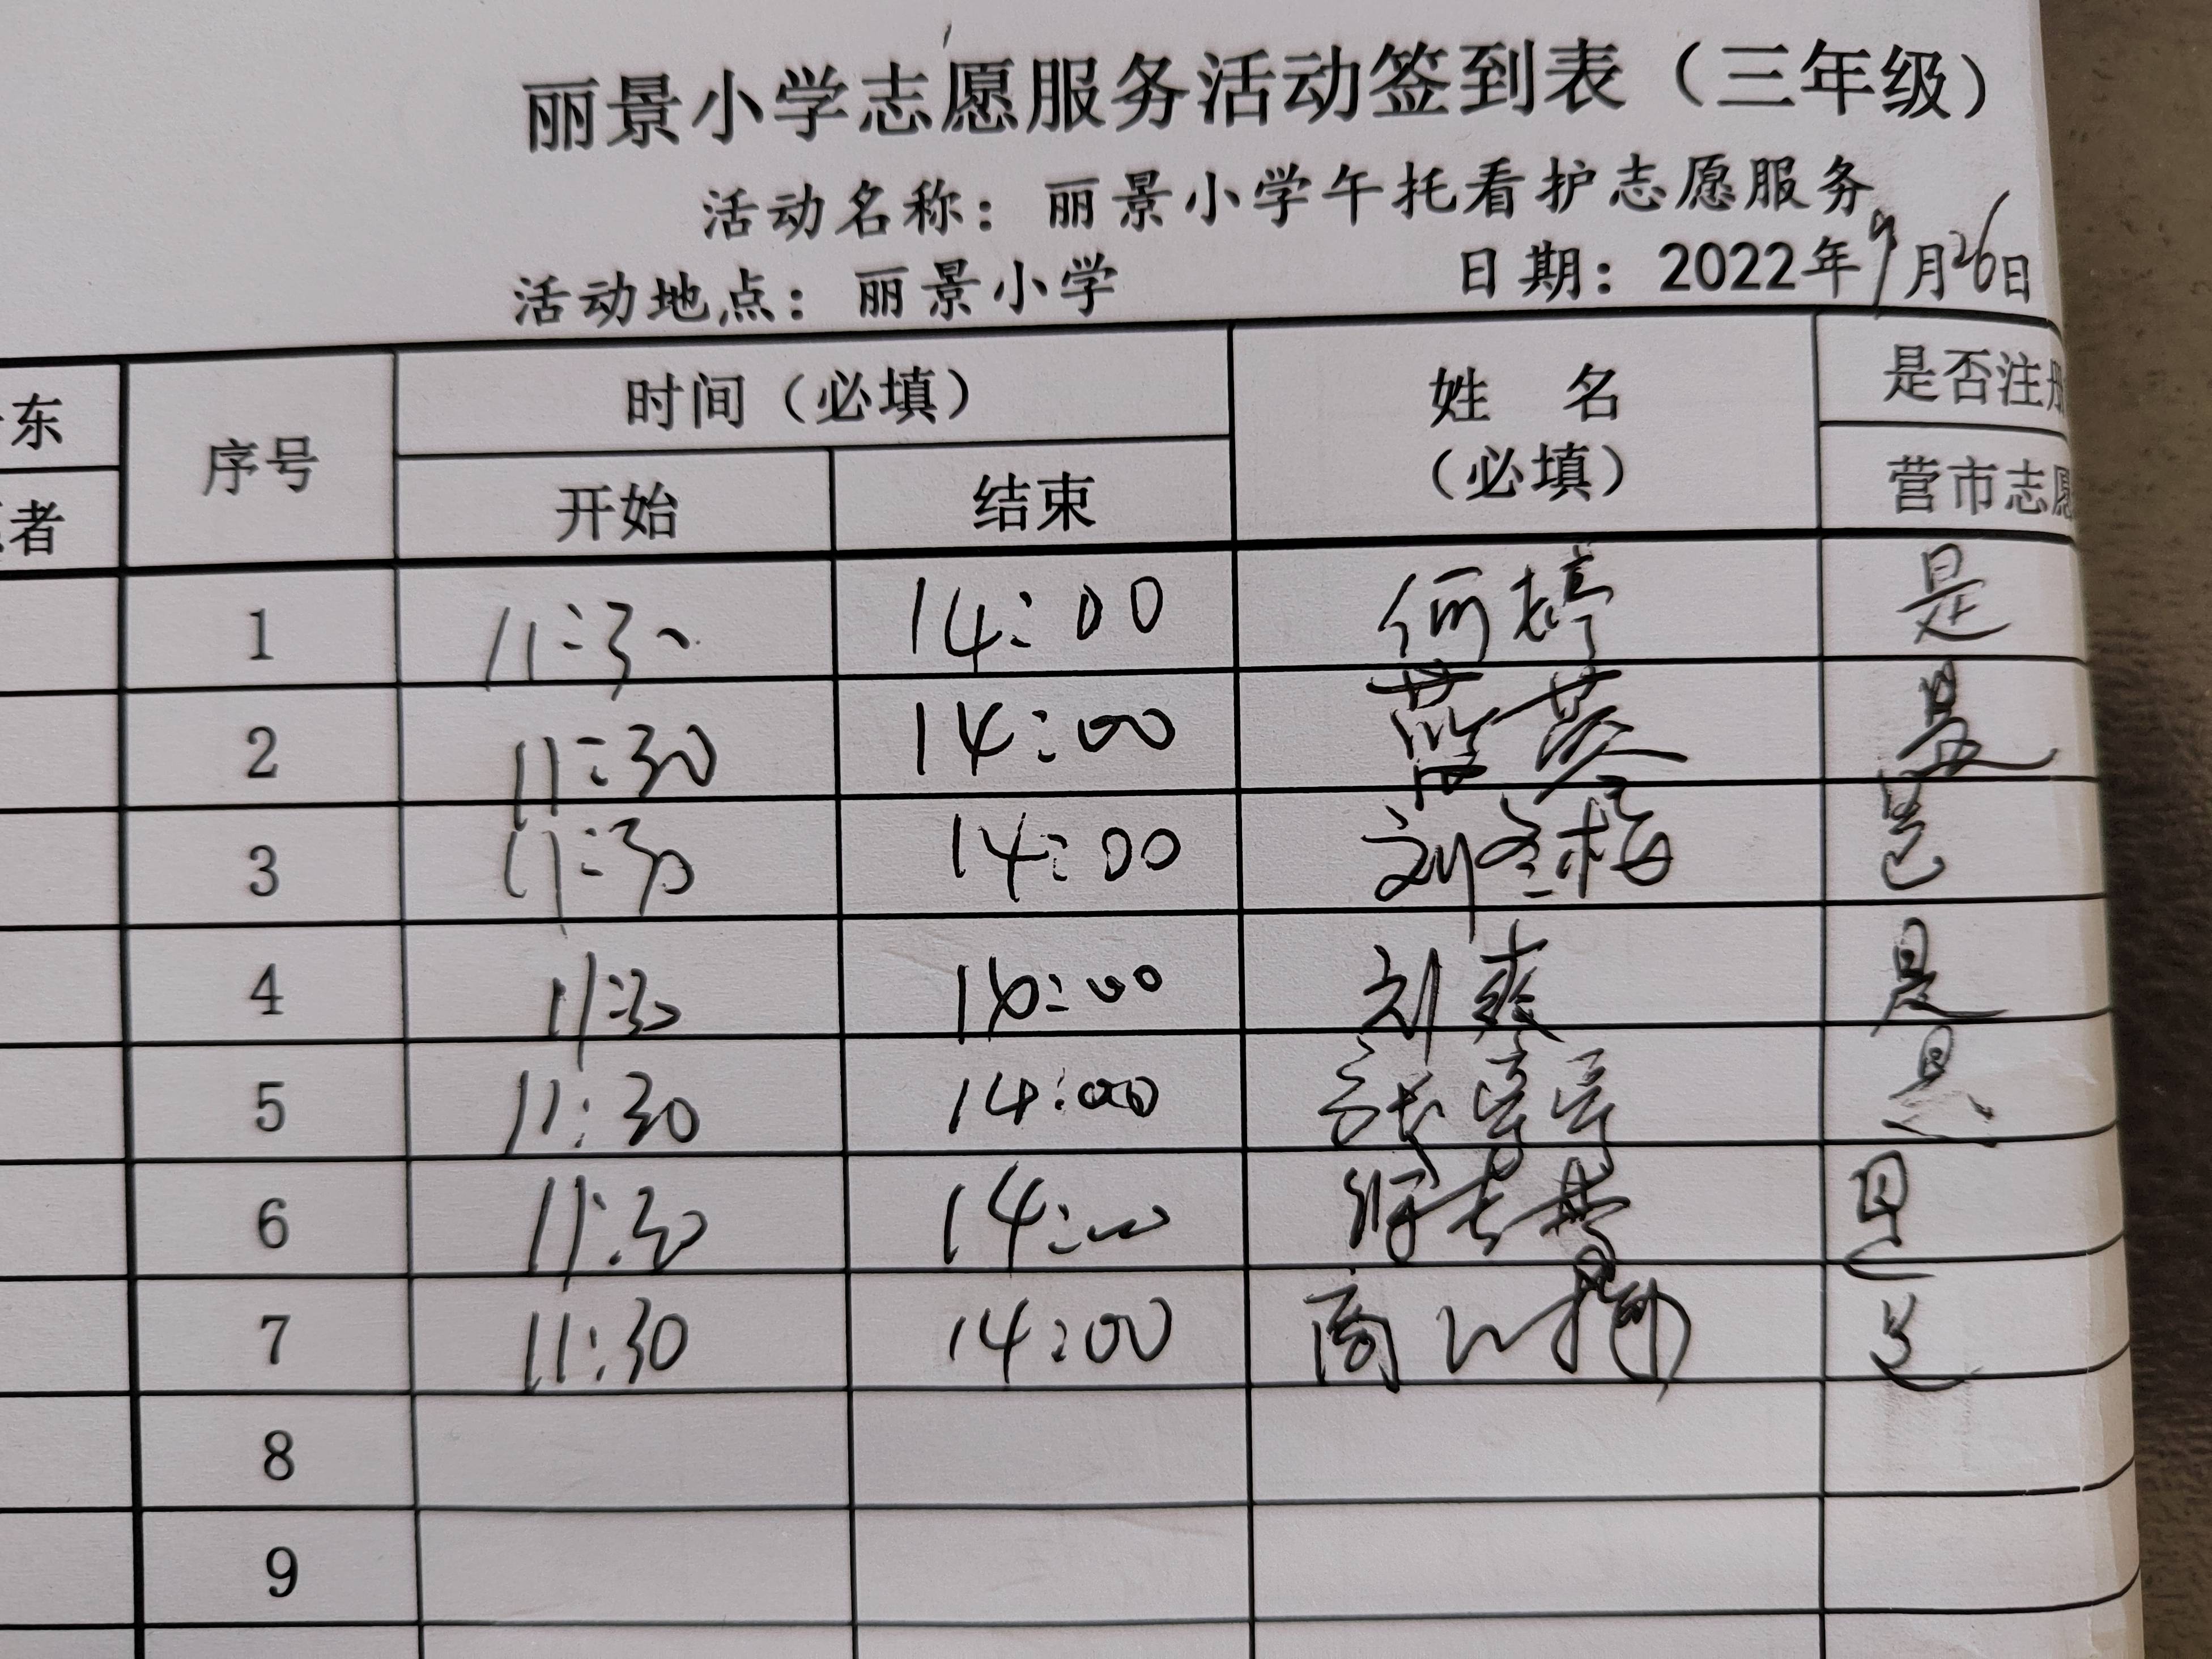 丽景小学志愿服务活动签到表（三年级）
活动名称：丽景小学午托看护志愿服务
活动地点：丽景小学 日期：2022年9月26日
东 序号 时间（必填） 姓 名 是否注册
者 开始 结束 （必填） 营市志愿
1 11:30 14:00 何婷 是
2 11:30 14:00 是
3 11:30 14:00 刘冬梅 是
4 11:30 14:00 刘爽 是
5 11:30 14:00 张 是
6 11:30 14:00 是
7 11:30 14:00 商 是
8
9